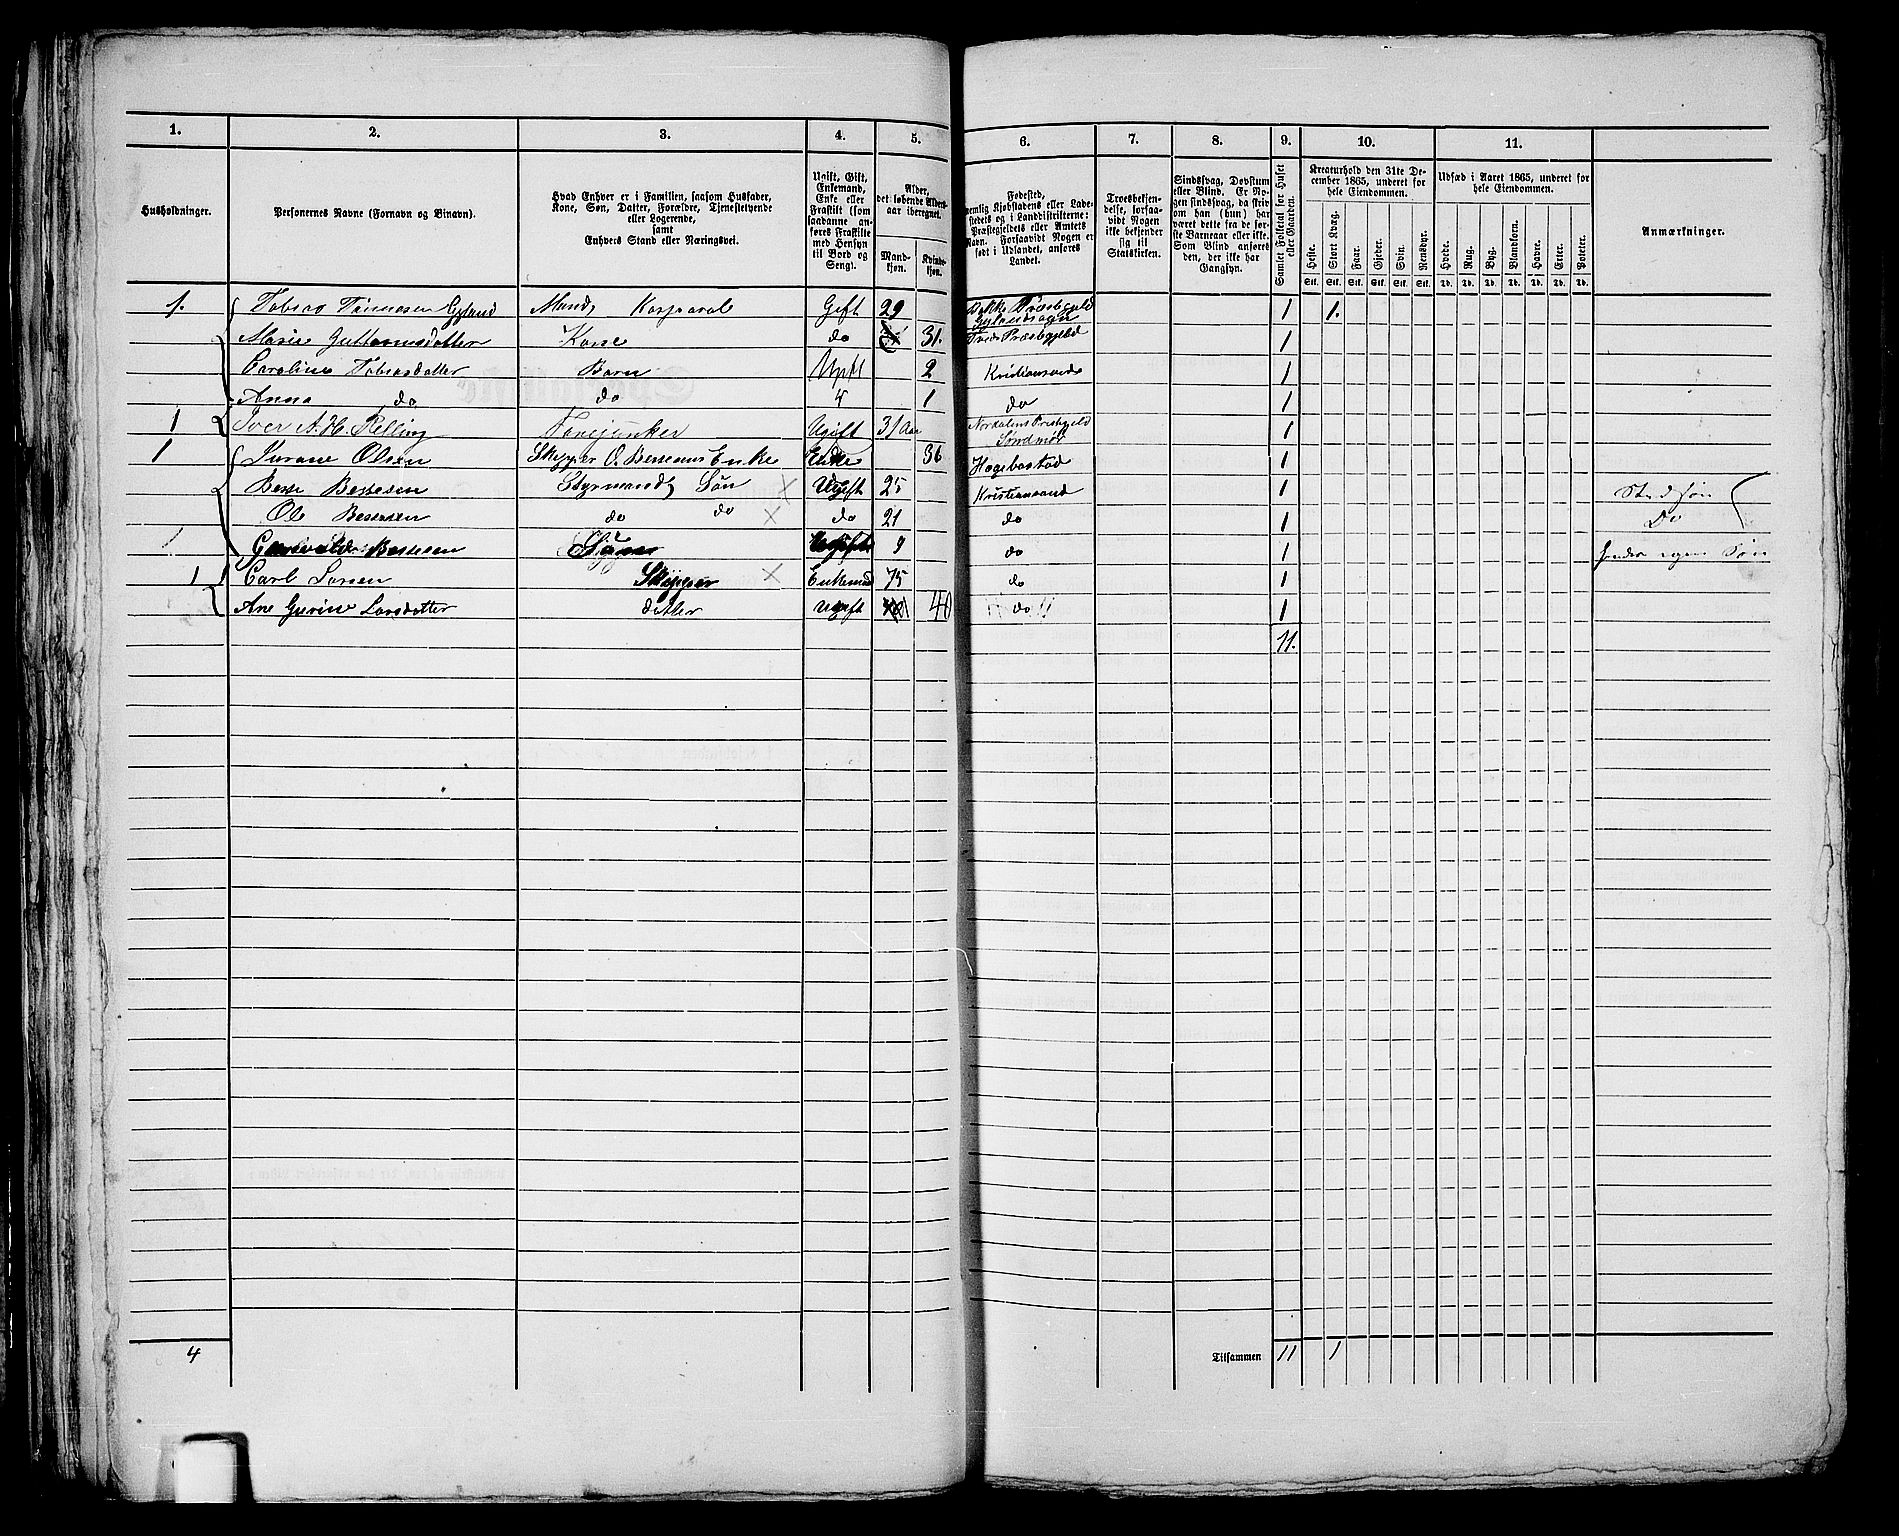 1. 2. 3. 4. 5. 6. 7. 8. 9. 10. 11.
Husholdninger.
Personernes Navne (Fornavn og Binavn).
Hvad Enhver er i Familien, saasom Husfader,
Kone, Søn, Datter, Forældre, Tjenestetyende
eller Logerende,
samt
Enhvers Stand eller Næringsvei.
Ugift, Gift,
Enkemand,
Enke eller
Fraskilt (som
saadanne an-
føres Fraskilte
med Hensyn
til Bord og
Seng).
Alder,
det løbende Alders-
aar iberegnet.
Mand-
kjøn.
Kvinde-
kjøn.
Fødested,
nemlig Kjøbstadens eller Lade-
stedets og i Landdistrikterne:
Præstegjeldets eller Amtets
Navn. Forsaavidt Nogen er
født i Udlandet, anføres
Landet.
Troesbekjen-
delse, forsaa-
vidt Nogen
ikke bekjender
sig til
Statskirken.
Sindssvag, Døvstum
eller Blind. Er No-
gen sindssvag, da skriv
om han (hun) har
været dette fra de før-
ste Barneaar eller ikke.
Som Blind anføres
den, der ikke har
Gangsyn.
Samlet Folketal for Huset
eller Gaarden.
Kreaturhold den 31te De-
cember 1865, underet for
hele Eiendommen.
Heste. Stort Kvæg. Faar. Gjeder. Svin. Rensdyr.
Stk. Stk. Stk. Stk. Stk. Stk.
Udsæd i Aaret 1865, underet for
hele Eiendommen.
Hvede. Rug. Byg. Blandkorn. Havre. Erter. Poteter.
Td. Td. Td. Td. Td. Td. Td.
Anmærkninger.
1. Tobias Tønnesen Gyland Mand, Korporal Gift 29 Bakke Præstegjeld Gylandsogn 1 1.
Marie Guttormsdatter Kone do 31. Tveds Præstegjeld 1
Caroline Tobiasdatter Barn Ugift 2 Kristiansand 1
Anna do do 1 do 1
1 Iver A. H. Relling Fanejunker Ugift 31 Aar Nordalens Prestgjeld Søndmør 1
1 Jurane Olsen Skipper O. Bessesens Enke Enke 36 Hægebostad 1
Besse Bessesen Styrmand, Søn X Ugift 25 Kristiansand 1 Stedsøn
Ole Bessesen do do X do 21 do 1 Do
Bessesen Ugift 9 do 1 hendes egen Søn
1 Carl Larsen Skipper X Enkemand 75 do 1
Ane Gurine Larsdatter datter Ugift 40 do 1
11.
4 Tilsammen 11 1